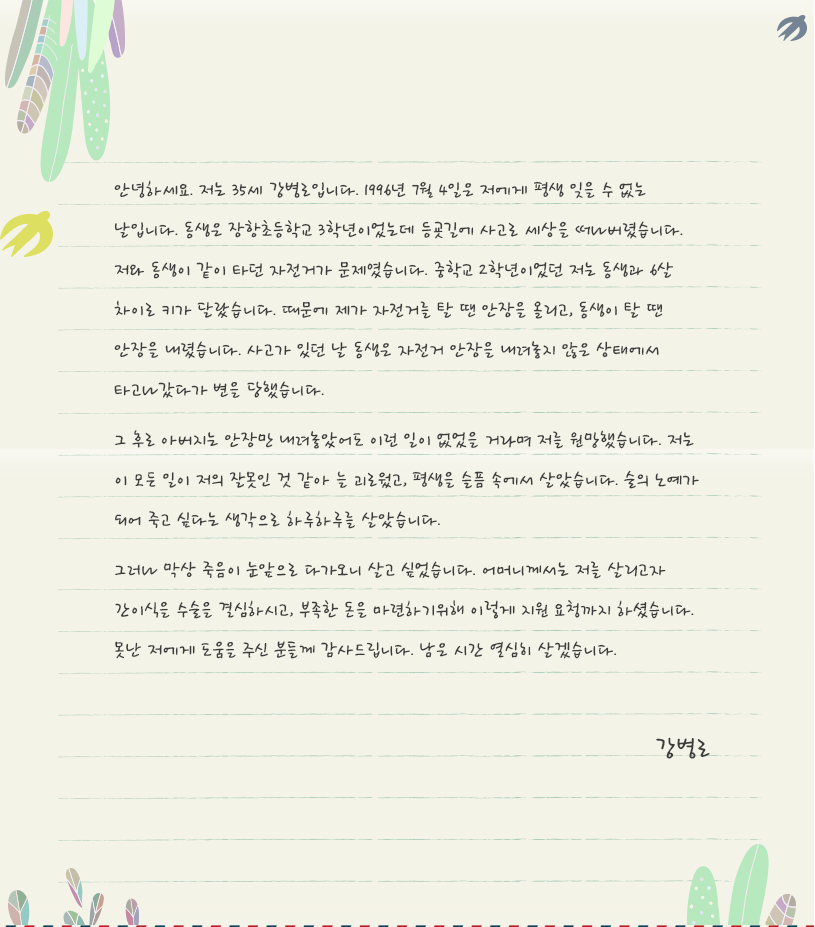 안녕하세요. 저는 35세 강병로입니다. 1996년 7월 4일은 저에게 평생 잊을 수 없는
날입니다. 동생은 장항초등학교 3학년이었는데 등굣길에 사고로 세상을 떠나버렸습니다.
저와 동생이 같이 타던 자전거가 문제였습니다. 중학교 2학년이었던 저는 동생과 6살
차이로 키가 달랐습니다. 때문에 제가 자전거를 탈 땐 안장을 올리고, 동생이 탈 땐
안장을 내렸습니다. 사고가 있던 날 동생은 자전거 안장을 내려놓지 않은 상태에서
타고나갔다가 변을 당했습니다.
그 후로 아버지는 안장만 내려놓았어도 이런 일이 없었을 거라며 저를 원망했습니다. 저는
이 모든 일이 저의 잘못인 것 같아 늘 괴로웠고, 평생을 슬픔 속에서 살았습니다. 술의 노예가
되어 죽고 싶다는 생각으로 하루하루를 살았습니다.
그러나 막상 죽음이 눈앞으로 다가오니 살고 싶었습니다. 어머니께서는 저를 살리고자
간이식은 수술을 결심하시고, 부족한 돈을 마련하기위해 이렇게 지원 요청까지 하셨습니다.
못난 저에게 도움을 주신 분들께 감사드립니다. 남은 시간 열심히 살겠습니다.
강병로